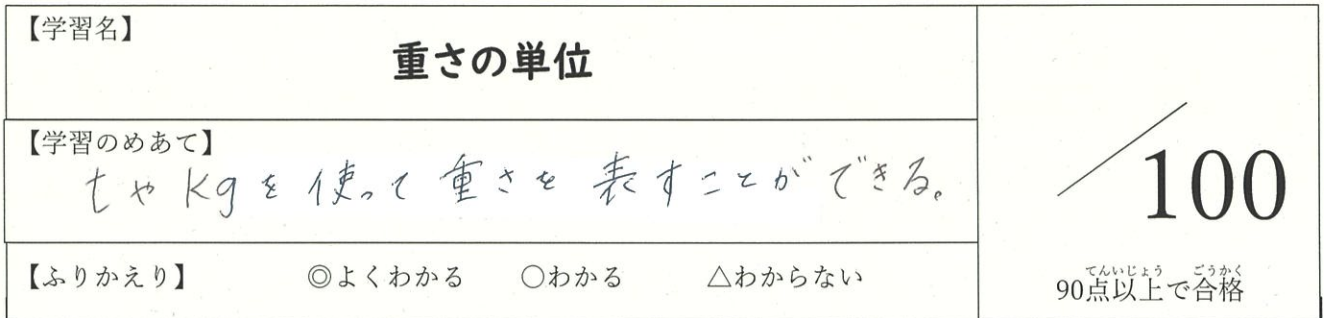 【学習名】
重さの単位
【学習のめあて】
tやkgを使って重さを表すことができる。
【ふりかえり】 ◎よくわかる ○わかる △わからない
／100
てんいじょう ごうかく
90点以上で合格